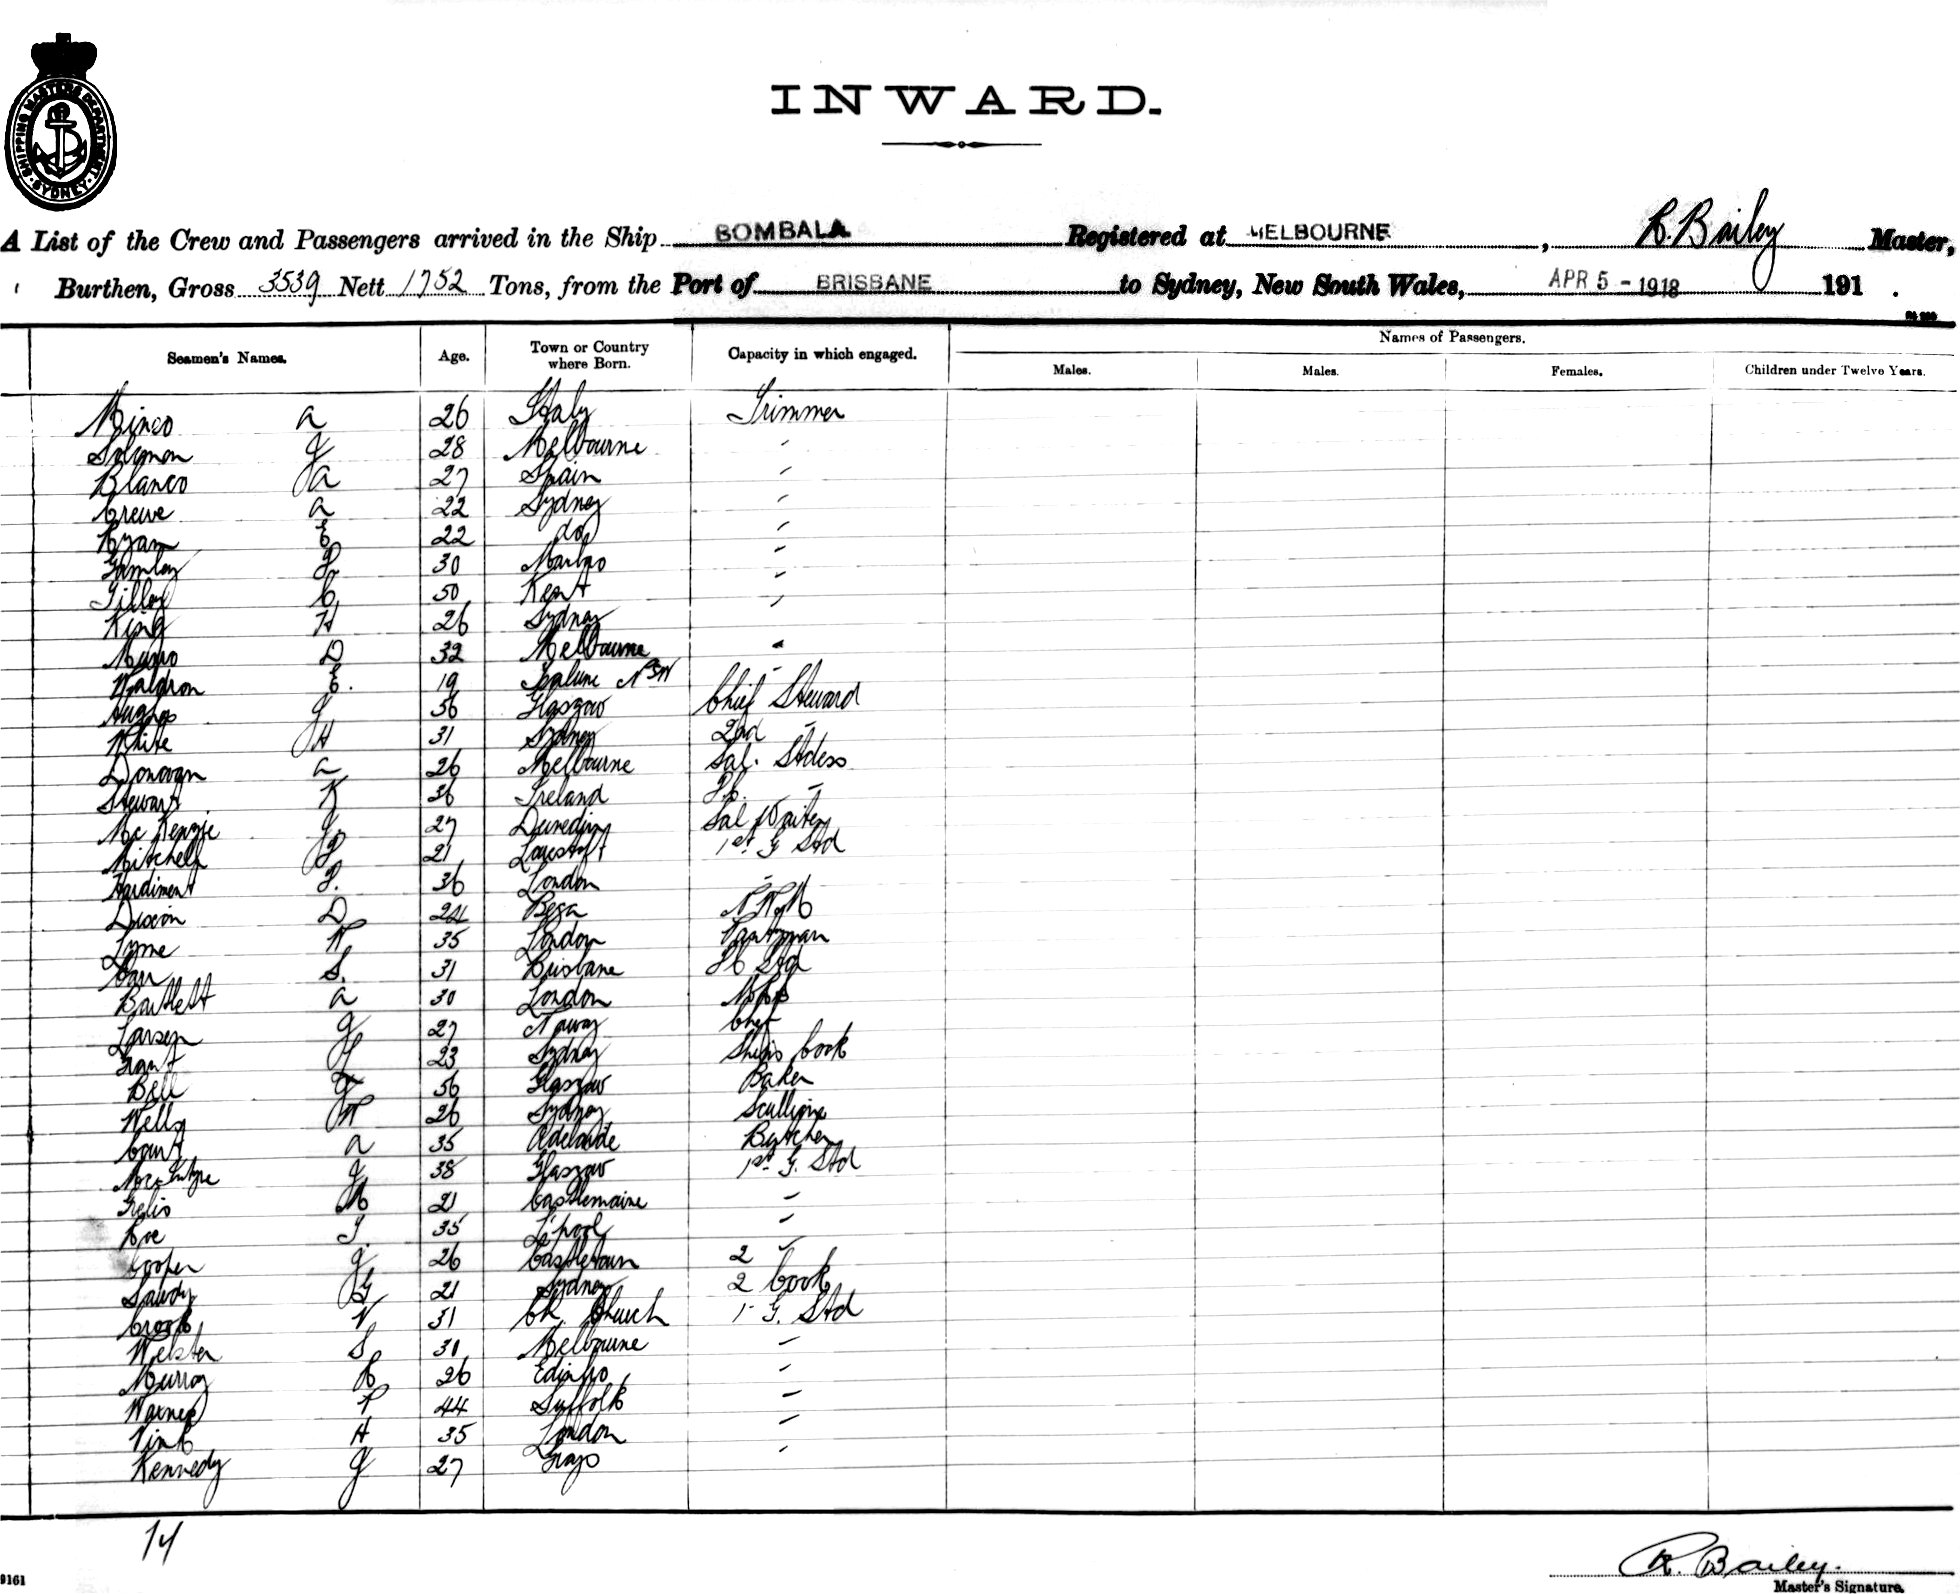 SHIPPING MASTERS DEPARTMENT
SYDNEY
INWARD.
A List of the Crew and Passengers arrived in the Ship BOMBALA Registered at MELBOURNE, R. Bailey Master,
Burthen, Gross 3539 Nett 1752 Tons, from the Port of BRISBANE to Sydney, New South Wales, APR 5 - 1918 191 .
Names of Passengers.
Seamen's Names. Age. Town or Country where Born. Capacity in which engaged. Males. Males. Females. Children under Twelve Years.
a 26 Italy Trimmer
Solomon J 28 Melbourne "
Blanco a 27 Spain "
Crewe a 22 Sydney "
Ryan E 22 do "
30 "
C 50 Kent "
King H 26 Sydney "
Munro D 32 Melbourne "
Waldron E. 19 NSW "
Hughes J 56 Glasgow Chief Steward
White H 31 Sydney 2nd "
Donovan a 26 Melbourne Sal. Stdess
Stewart K 36 Ireland "
McKenzie J 27 Dunedin Sal Waiter
Mitchell 21 Lowestoft 1st G Std
Hardiment 36 London "
Dixon D 24 Bega
Lyme W 35 London Pantryman
Carr S. 31 Brisbane Std
Bartlett a 30 London
Larsen J 27 Norway Chef
Grant J 23 Sydney Ships Cook
Bell J 56 Glasgow Baker
Wells W 26 Sydney
Court a 35 Adelaide Butcher
MacIntyre J 38 Glasgow 1st G. Std
M 21 Castlemaine "
Roe J. 35 L'pool "
Cooper J 26 Castletown 2 "
G 21 Sydney 2 Cook
Crook W 31 Ch. Church 1 G. Std
Webster S 30 Melbourne "
Murray R 26 Edinbro "
Warner P 44 Suffolk "
H 35 London "
Kennedy J 27 Grays "
14
9161
R. Bailey.
Master's Signature.